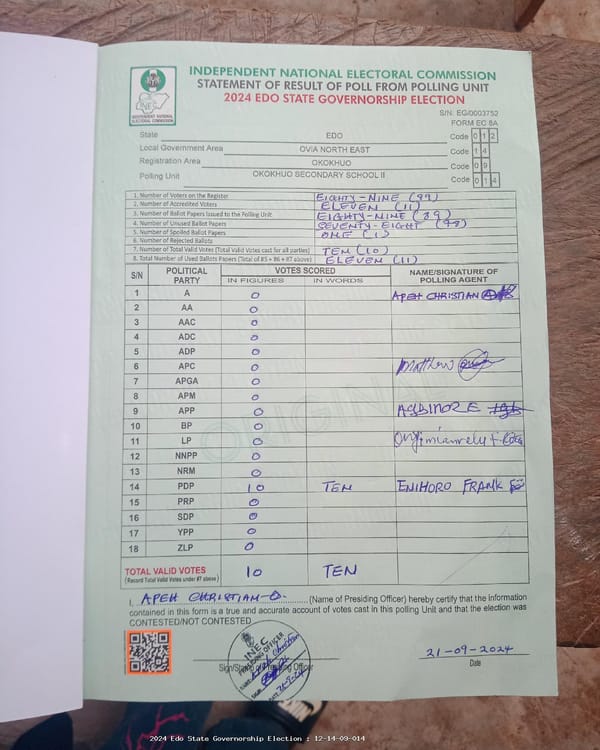 INDEPENDENT NATIONAL ELECTORAL COMMISSION
STATEMENT OF RESULT OF POLL FROM POLLING UNIT
2024 EDO STATE GOVERNORSHIP ELECTION
INEC
INDEPENDENT NATIONAL ELECTORAL COMMISSION
S/N: EG/0003752
FORM EC 8A
State EDO Code 0 1 2
Local Government Area OVIA NORTH EAST Code 1 4
Registration Area OKOKHUO Code 0 9
Polling Unit OKOKHUO SECONDARY SCHOOL II Code 0 1 4
1. Number of Voters on the Register EIGHTY-NINE (89)
2. Number of Accredited Voters ELEVEN (11)
3. Number of Ballot Papers Issued to the Polling Unit EIGHTY-NINE (89)
4. Number of Unused Ballot Papers SEVENTY-EIGHT (78)
5. Number of Spoiled Ballot Papers ONE (1)
6. Number of Rejected Ballots
7. Number of Total Valid Votes (Total Valid Votes cast for all parties) TEN (10)
8. Total Number of Used Ballots Papers (Total of #5 + #6 + #7 above) ELEVEN (11)
S/N POLITICAL PARTY VOTES SCORED NAME/SIGNATURE OF POLLING AGENT
IN FIGURES IN WORDS
1 A 0 APEH CHRISTIAN
2 AA 0
3 AAC 0
4 ADC 0
5 ADP 0
6 APC 0 Matthew
7 APGA 0
8 APM 0
9 APP 0
10 BP 0
11 LP 0
12 NNPP 0
13 NRM 0
14 PDP 10 TEN ENIHORO FRANK
15 PRP 0
16 SDP 0
17 YPP 0
18 ZLP 0
TOTAL VALID VOTES 10 TEN
(Record Total Valid Votes under #7 above)
ORIGINAL
I, APEH CHRISTIAN O. (Name of Presiding Officer) hereby certify that the information
contained in this form is a true and accurate account of votes cast in this polling Unit and that the election was
CONTESTED/NOT CONTESTED
INEC
PRESIDING OFFICER
Sign/Stamp of Presiding Officer
21-09-2024
Date
2024 Edo State Governorship Election : 12-14-09-014